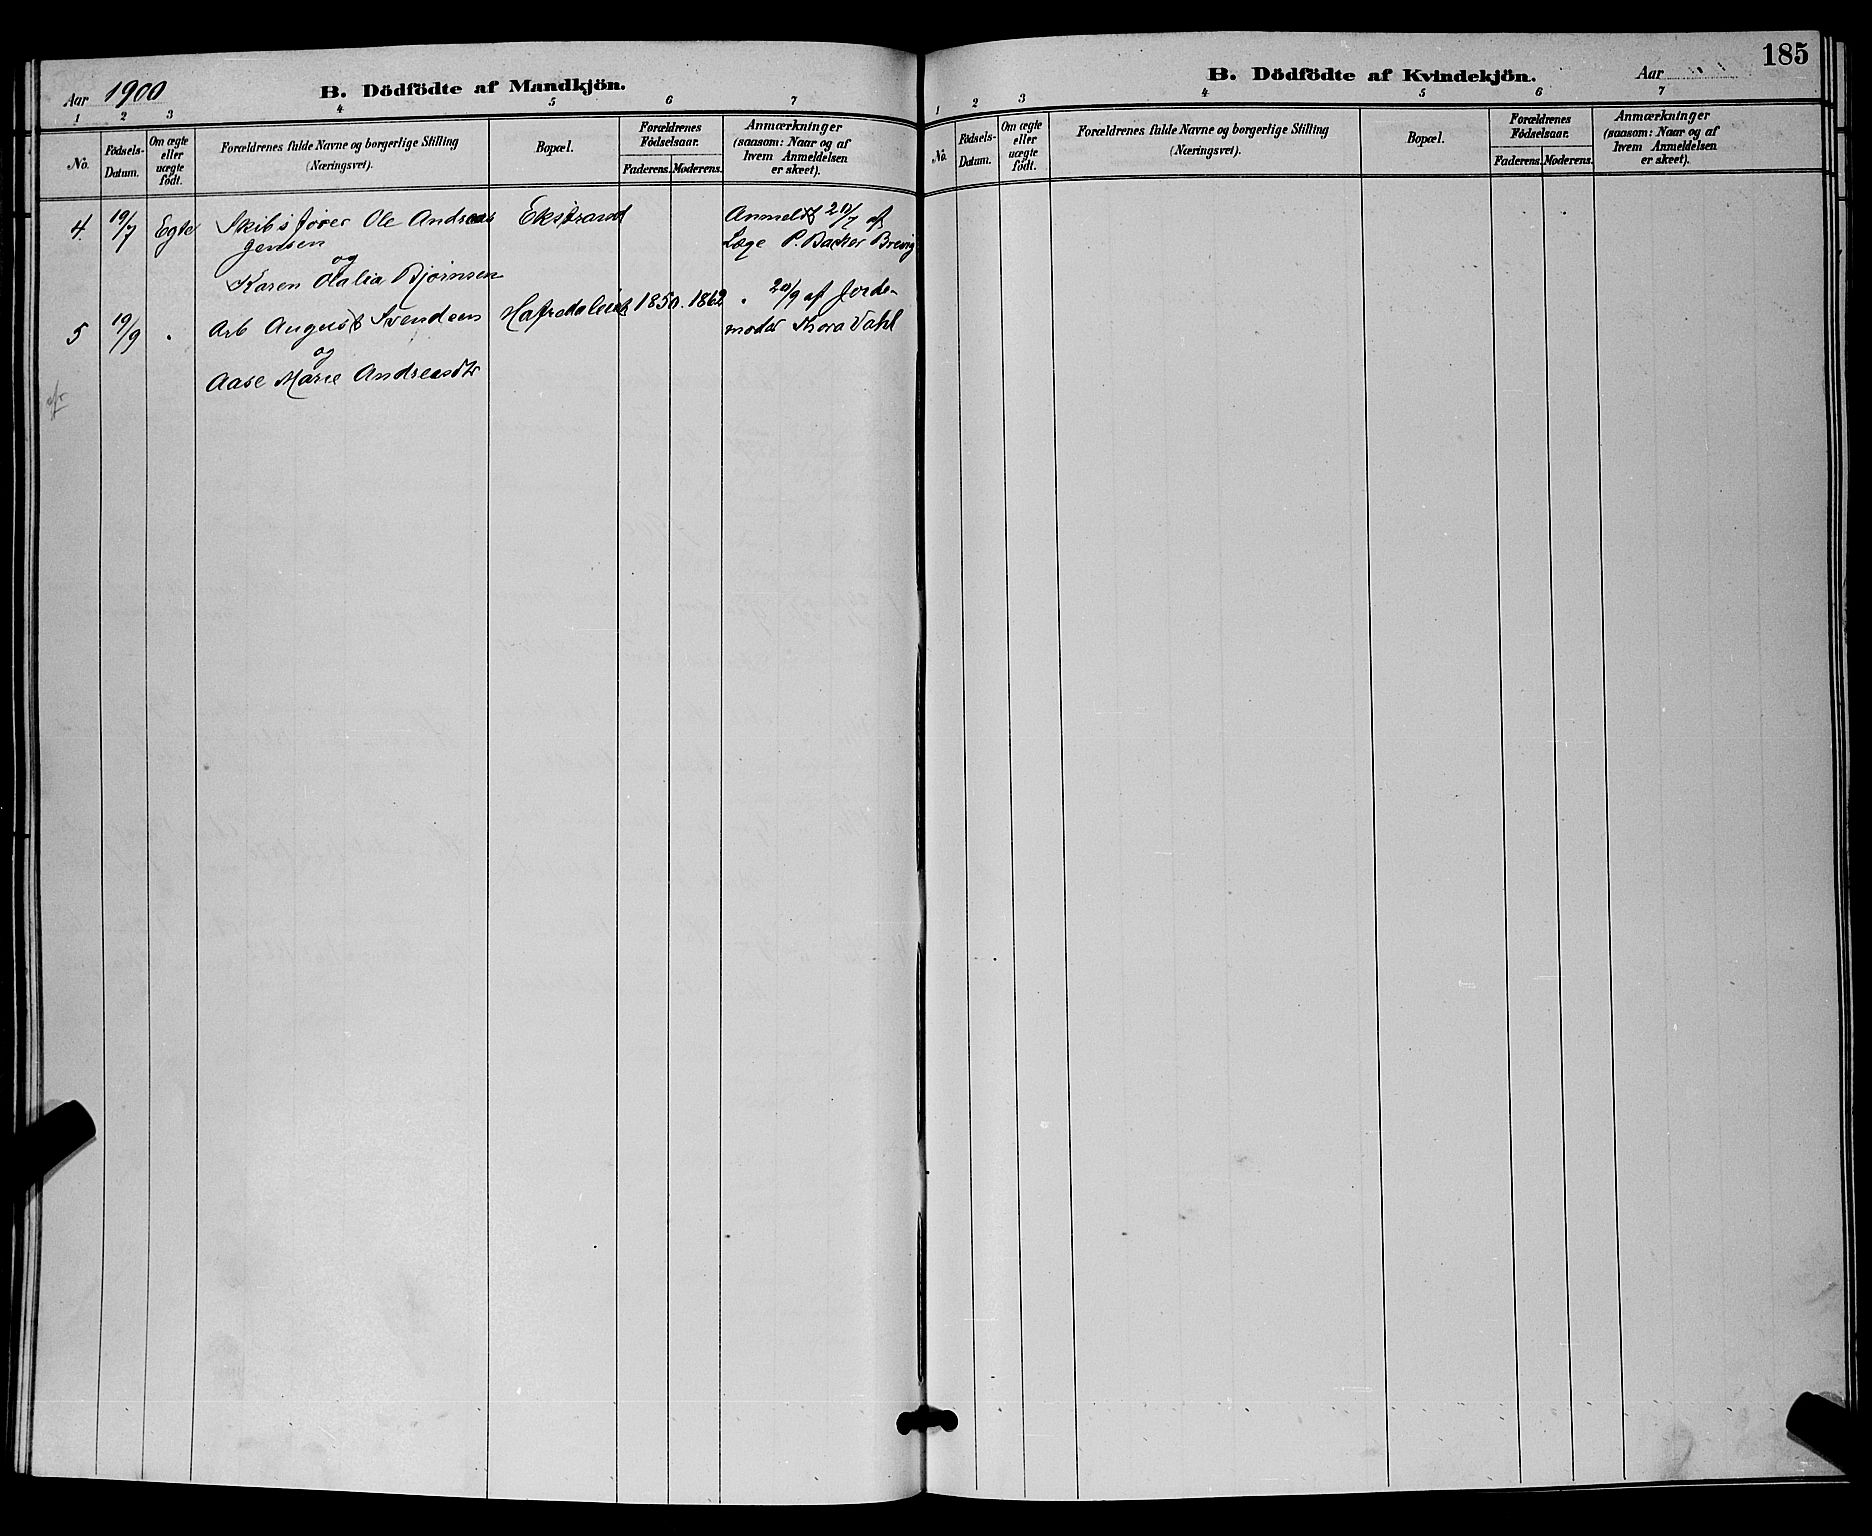 Aar 1900
B. Dödfödte af Mandkjön.
1 2 3 4 5 6 7
No.
Födsels-
Datum.
Om ægte
eller
uægte
födt.
Forældrenes fulde Navne og borgerlige Stilling
(Næringsvei).
Bopæl.
Forældrenes
Födselsaar.
Faderens. Moderens.
Anmærkninger
(saasom: Naar og af
hvem Anmeldelsen
er skeet).
4. 19/7 Egte Skibsfører Ole Andreas Ekstrand Anmeldt 20/7 af
Jensen Læge P. Backer Brevig
og
Karen Olalia Bjørnsen
5 19/9 " Arb August Svendsen 1850. 1862 " 20/9 af Jorde-
og moder Thora Vahl
Aase Marie Andreasdtr
185
B. Dödfödte af Kvindekjön. Aar
1 2 3 4 5 6 7
No.
Födsels-
Datum.
Om ægte
eller
uægte
födt.
Forældrenes fulde Navne og borgerlige Stilling
(Næringsvei).
Bopæl.
Forældrenes
Födselsaar.
Faderens. Moderens.
Anmærkninger
(saasom: Naar og af
hvem Anmeldelsen
er skeet).